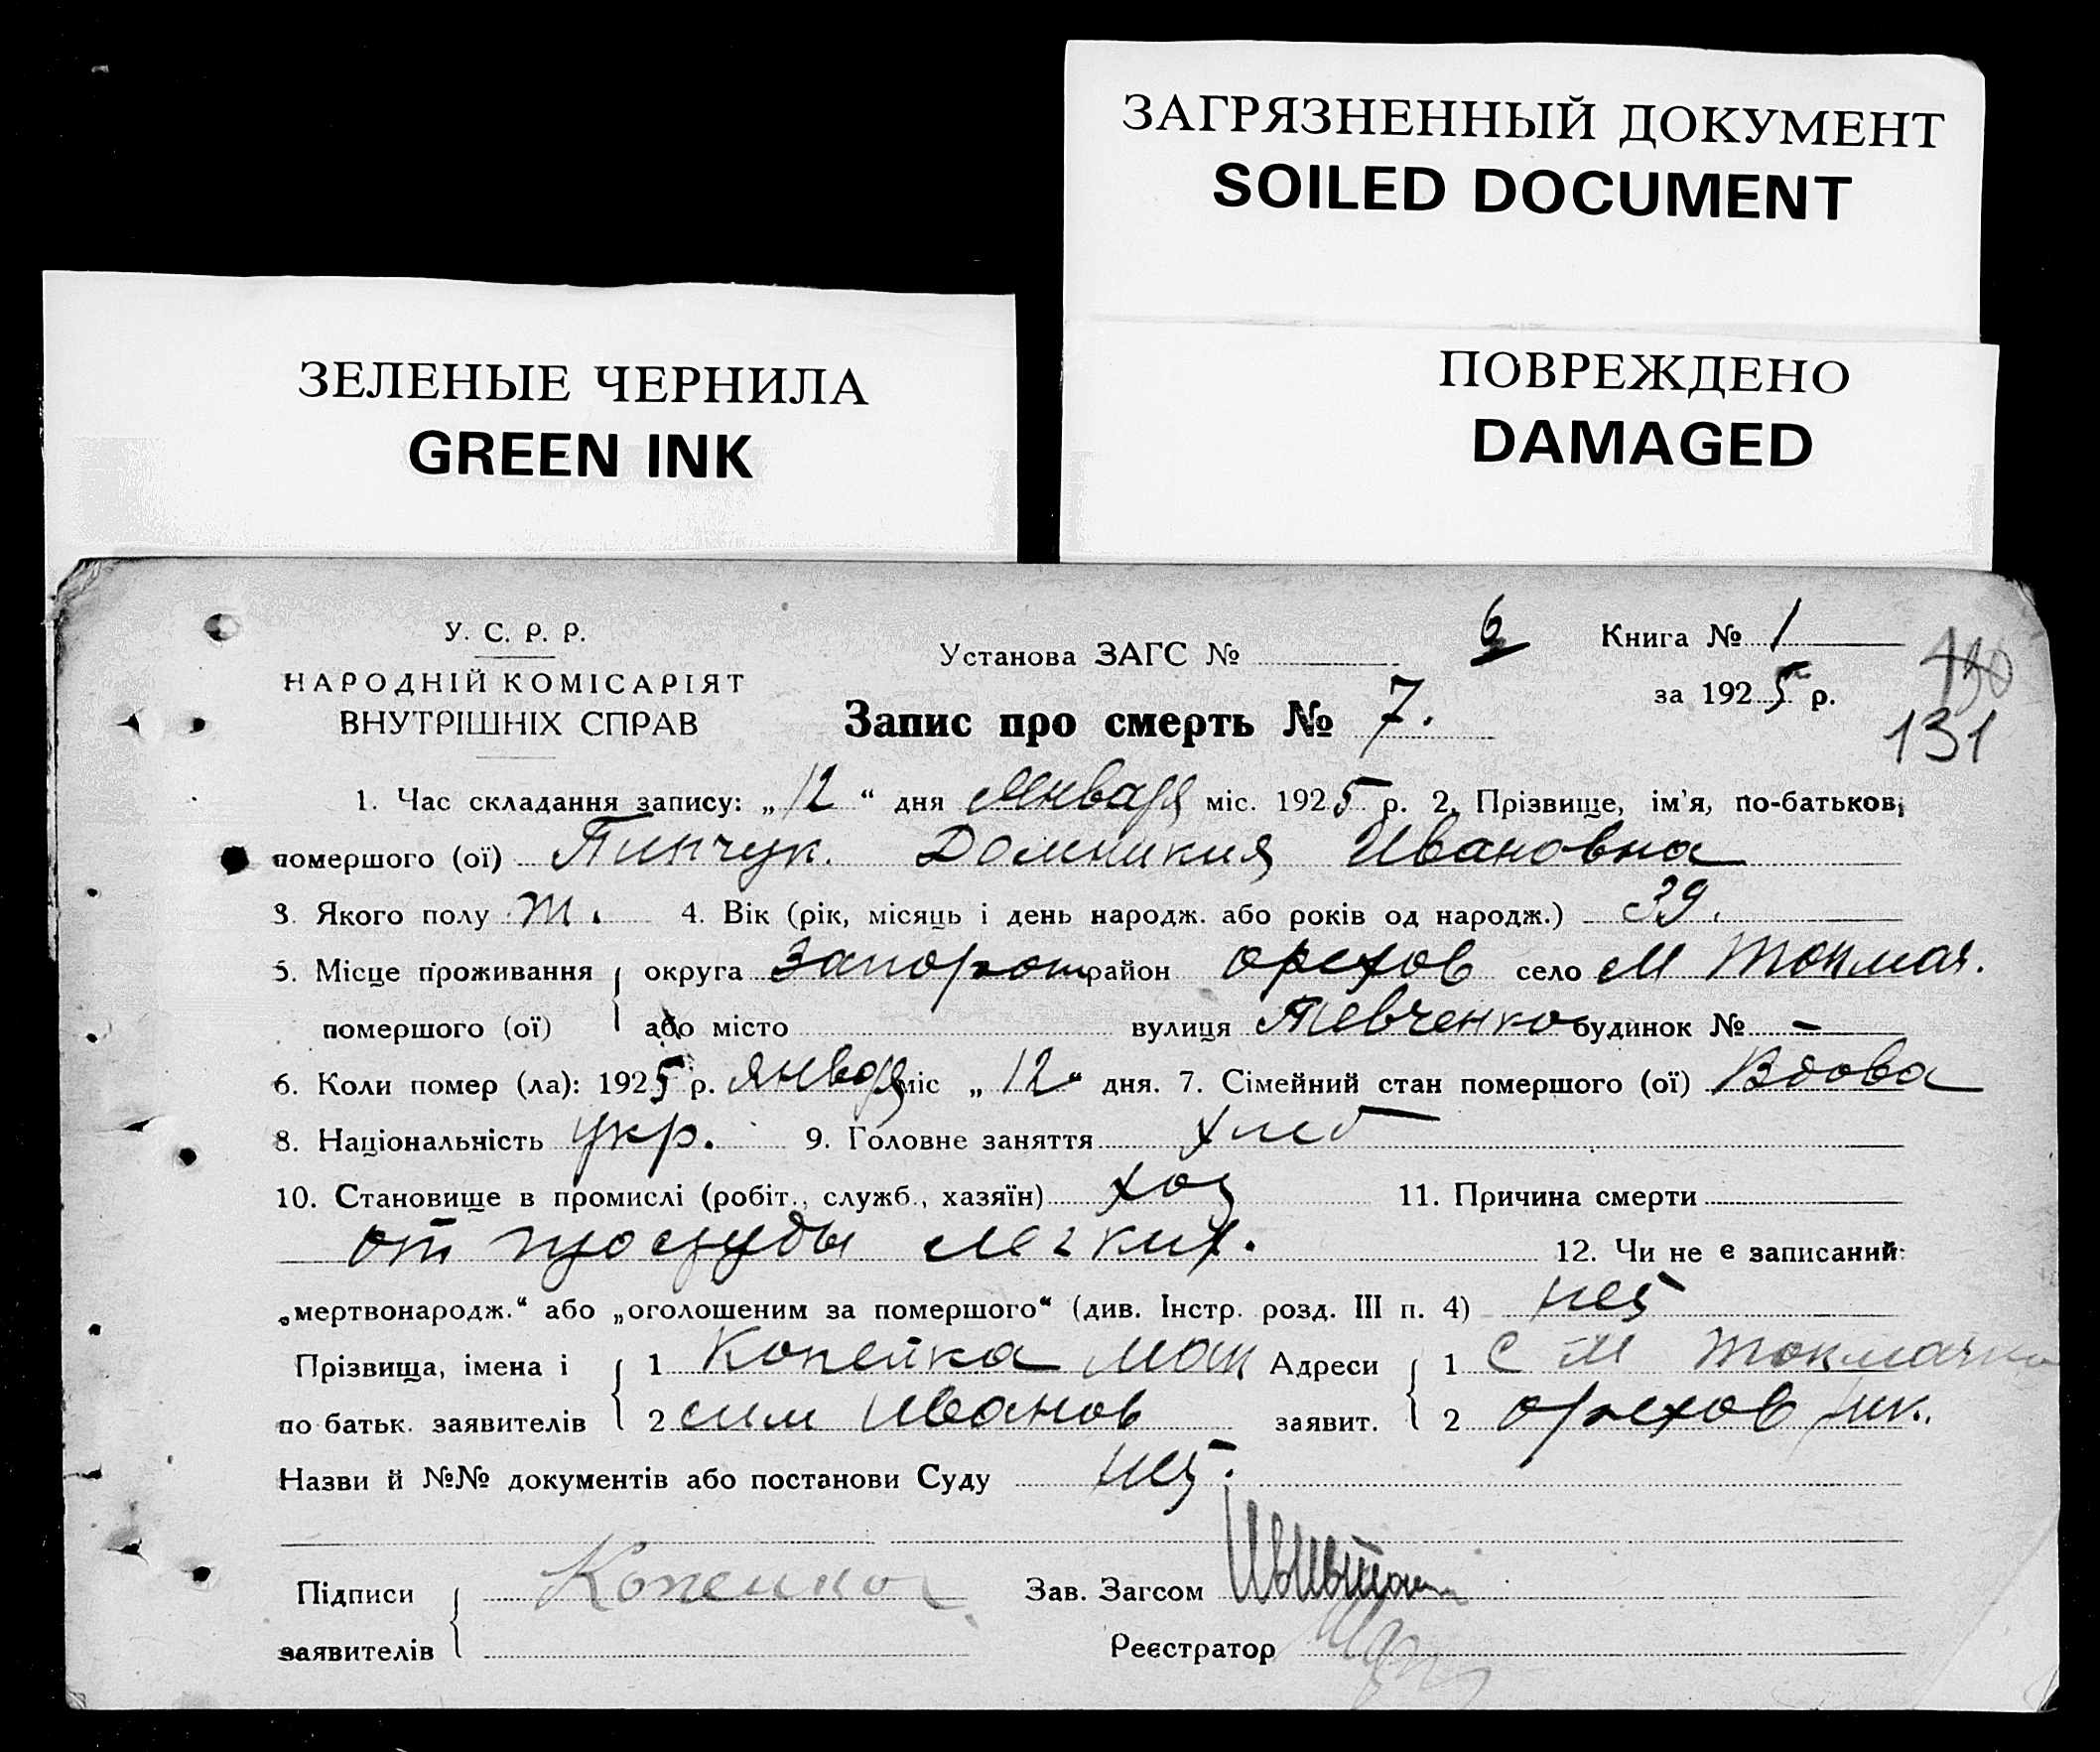 ЗАГРЯЗНЕННЫЙ ДОКУМЕНТ
SOILED DOCUMENT
ЗЕЛЕНЫЕ ЧЕРНИЛА
GREEN INK
ПОВРЕЖДЕНО
DAMAGED
У. С. Р. Р.
НАРОДНІЙ КОМІСАРІЯТ
ВНУТРІШНІХ СПРАВ
Установа ЗАГС № 6
Книга № 1
за 1925 р.
130
131
Запис про смерть № 7.
1. Час складання запису: „12“ дня Января міс. 1925 р. 2. Прізвище, ім'я, по-батькові
помершого (ої) Пинчук. Домникия Ивановна
3. Якого полу 4. Вік (рік, місяць і день народж. або років од народж.) 39.
5. Місце проживання округа Запорож район Орехов село М Токмач.
помершого (ої) або місто вулиця Шевченко будинок № –
6. Коли помер (ла): 1925 р. января міс „12“ дня. 7. Сімейний стан помершого (ої) Вдова
8. Національність укр. 9. Головне заняття хлеб
10. Становище в промислі (робіт., служб., хазяїн) хоз 11. Причина смерти
от простуды легких. 12. Чи не є записаний:
„мертвонародж.“ або „оголошеним за помершого“ (див. Інстр. розд. III п. 4) нет
Прізвища, імена і 1 Копейка Адреси 1 С М Токмачка
по батьк. заявителів 2 Иванов заявит. 2 Орехов
Назви й №№ документів або постанови Суду нет.
Підписи Копейко Зав. Загсом
заявителів Реєстратор